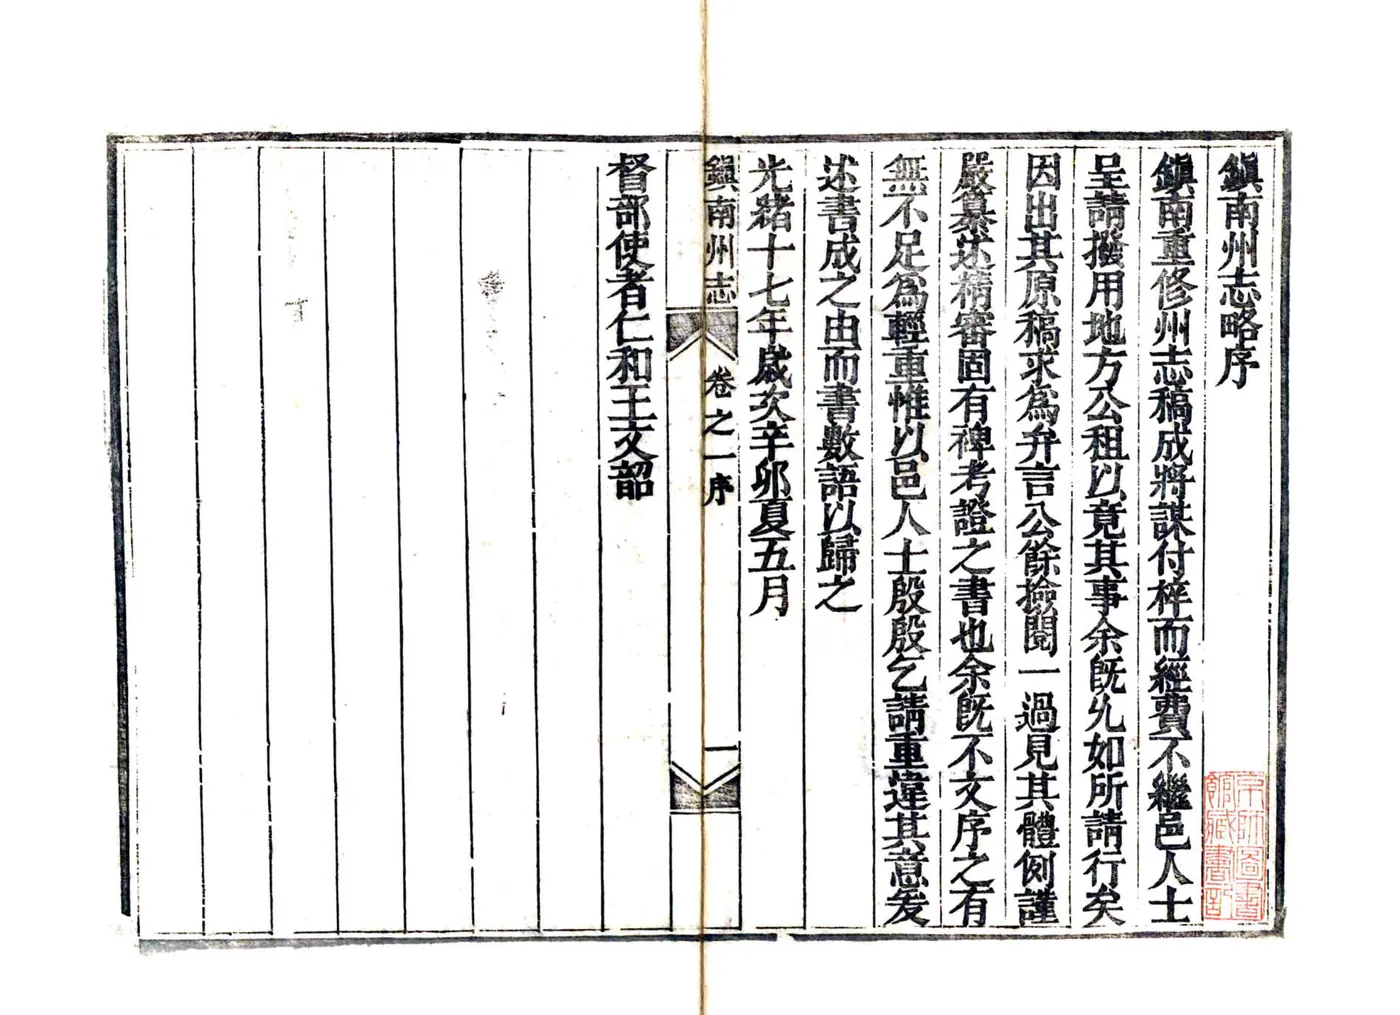 鎮南州志略序
鎮南重修州志稿成將謀付梓而經費不繼邑人士
呈請撥用地方公租以竟其事余旣允如所請行矣
因出其原稿求為弁言公餘撿閱一過見其體例謹
嚴纂述精審固有裨考證之書也余旣不文序之有
無不足為輕重惟以邑人士殷殷乞請重違其意爰
述書成之由而書數語以歸之
光緒十七年歲次辛卯夏五月
鎮南州志
卷之一序
一
督部使者仁和王文韶
京師圖書
館藏書記